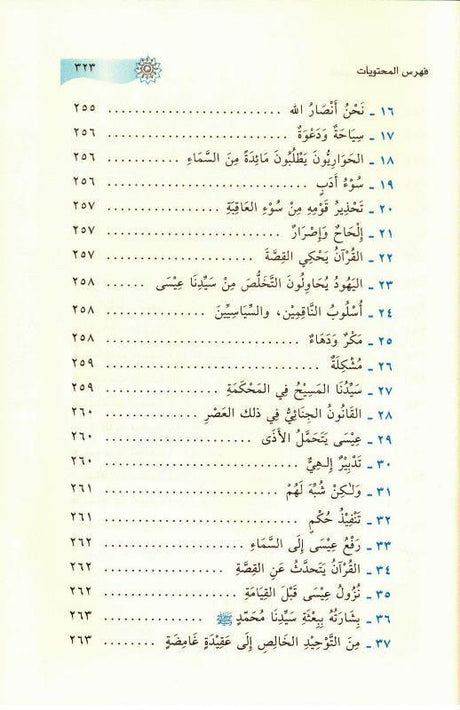 فهرس المحتويات ٣٢٣
١٦ ـ نَحْنُ أَنْصَارُ الله ............................ ٢٥٥
١٧ ـ سِيَاحَةٌ وَدَعْوَةٌ ............................ ٢٥٦
١٨ ـ الحَوَارِيُّونَ يَطْلُبُونَ مَائِدَةً مِنَ السَّمَاءِ ............ ٢٥٦
١٩ ـ سُوْءُ أَدَبٍ ................................ ٢٥٦
٢٠ ـ تَحْذِيرُ قَوْمِهِ مِنْ سُوْءِ العَاقِبَةِ ................ ٢٥٧
٢١ ـ إِلْحَاحٌ وَإِصْرَارٌ ............................ ٢٥٧
٢٢ ـ القُرْآنُ يَحْكِي القِصَّةَ ........................ ٢٥٧
٢٣ ـ اليَهُودُ يُحَاوِلُونَ التَّخَلُّصَ مِنْ سَيِّدِنَا عِيْسَى ...... ٢٥٨
٢٤ ـ أُسْلُوبُ النَّاقِمِيْنَ، والسِّيَاسِيِّينَ ................ ٢٥٨
٢٥ ـ مَكْرٌ وَدَهَاءٌ ................................ ٢٥٨
٢٦ ـ مُشْكِلَةٌ .................................. ٢٥٩
٢٧ ـ سَيِّدُنَا المَسِيْحُ فِي المَحْكَمَةِ .................. ٢٥٩
٢٨ ـ القَانُونُ الجِنَائِيُّ فِي ذلك العَصْرِ .............. ٢٦٠
٢٩ ـ عِيْسَى يَتَحَمَّلُ الأَذَى ........................ ٢٦٠
٣٠ ـ تَدْبِيْرٌ إِلـهِيٌّ ................................ ٢٦٠
٣١ ـ وَلٰكِنْ شُبِّهَ لَهُمْ ............................ ٢٦١
٣٢ ـ تَنْفِيْذُ حُكْمٍ ................................ ٢٦١
٣٣ ـ رَفْعُ عِيْسَى إِلَى السَّمَاءِ ...................... ٢٦٢
٣٤ ـ القُرْآنُ يَتَحدَّثُ عَنِ القِصَّةِ .................. ٢٦٢
٣٥ ـ نُزُولُ عِيْسَى قَبْلَ القِيَامَةِ .................... ٢٦٢
٣٦ ـ بِشَارَتُهُ بِبِعْثَةِ سَيِّدِنَا مُحَمَّدٍ ﷺ .............. ٢٦٣
٣٧ ـ مِنَ التَّوْحِيْدِ الخَالِصِ إِلَى عَقِيْدَةٍ غَامِضَةٍ ........ ٢٦٣